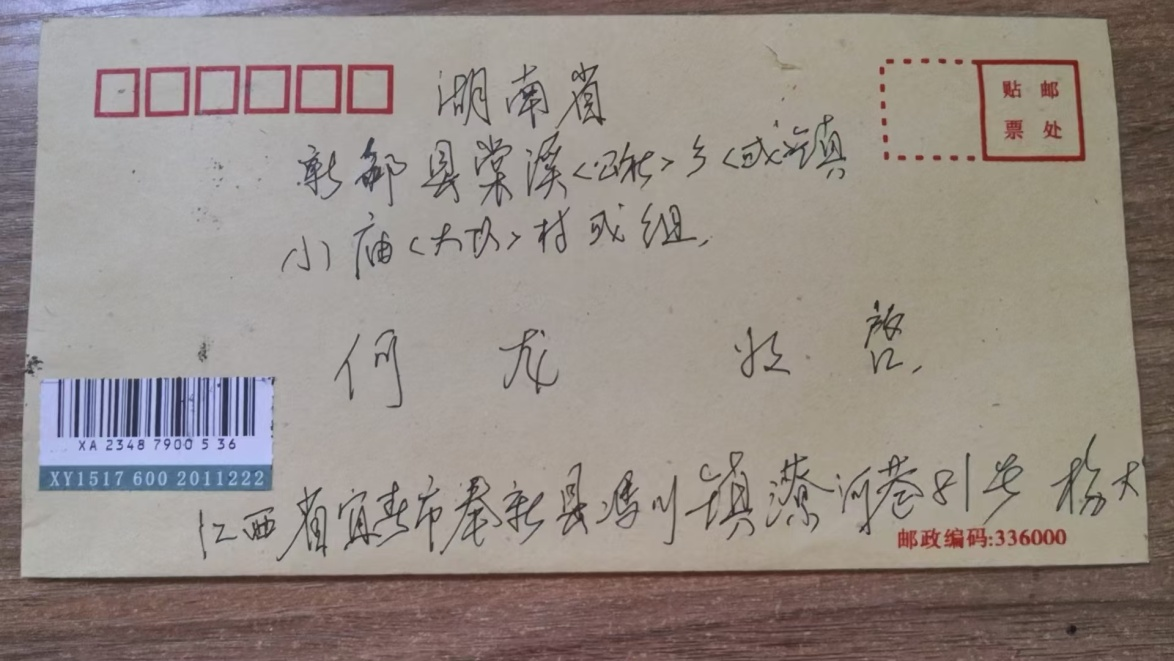 湖南省
贴邮
票处
新邵县棠溪<公社>乡<或>镇
小庙<大队>村或组.
何龙 收启.
XA 2348 7900 5 36
XY1517 600 2011222
江西省宜春市奉新县冯川镇潦河巷81号 杨大
邮政编码:336000